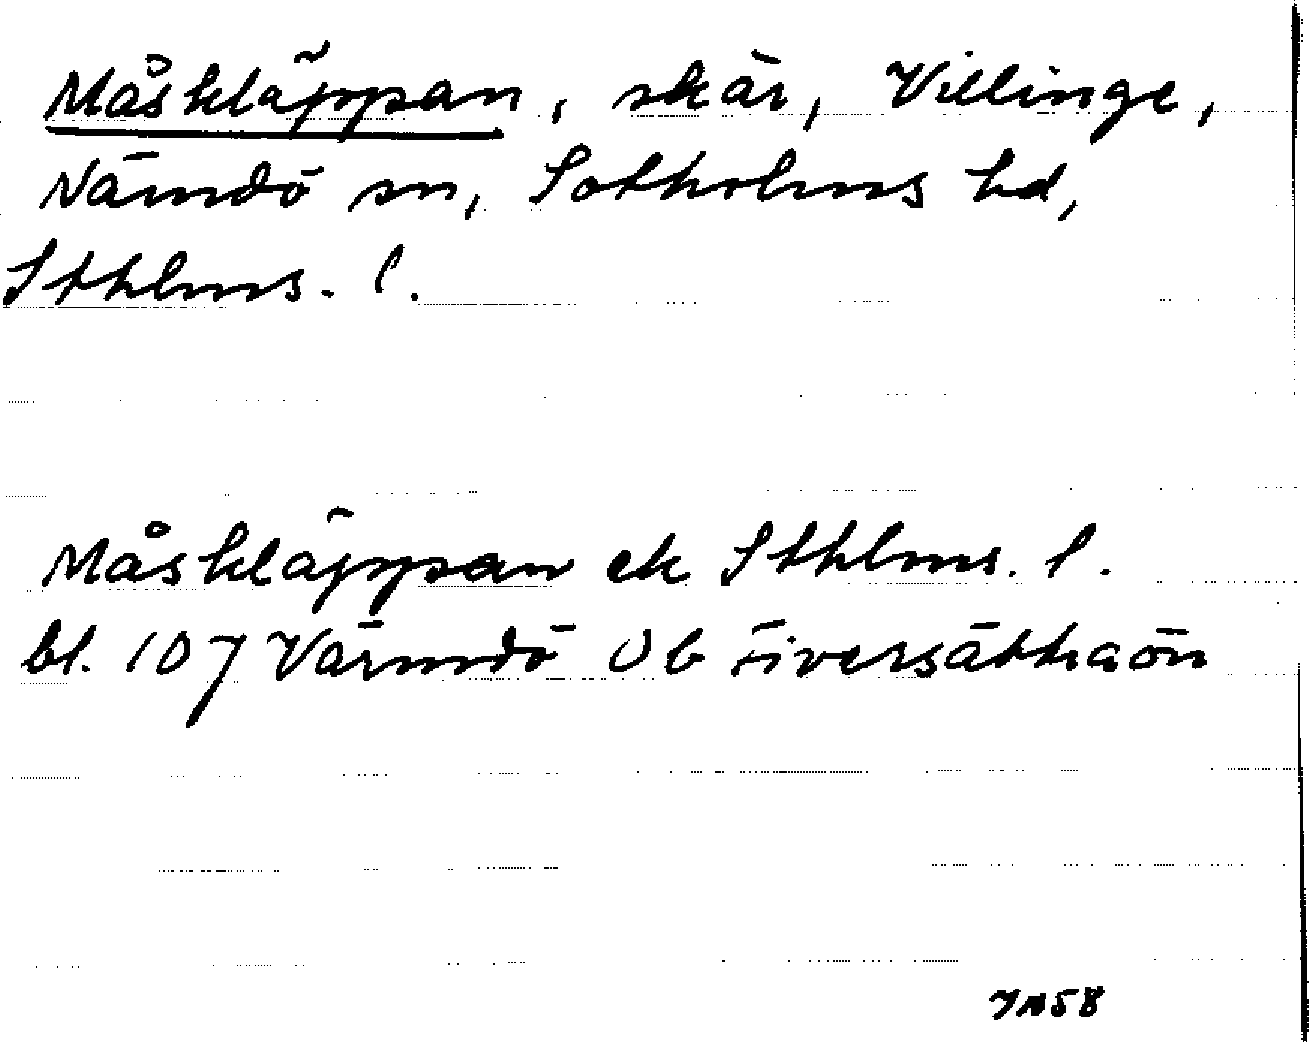 Måskläppan, skär, Villinge,
Nämdö sn, Sotholms hd,
Sthlms. l.
Måskläppan ek Sthlms. l.
bl. 107 Värmdö Ob Fiversätraön